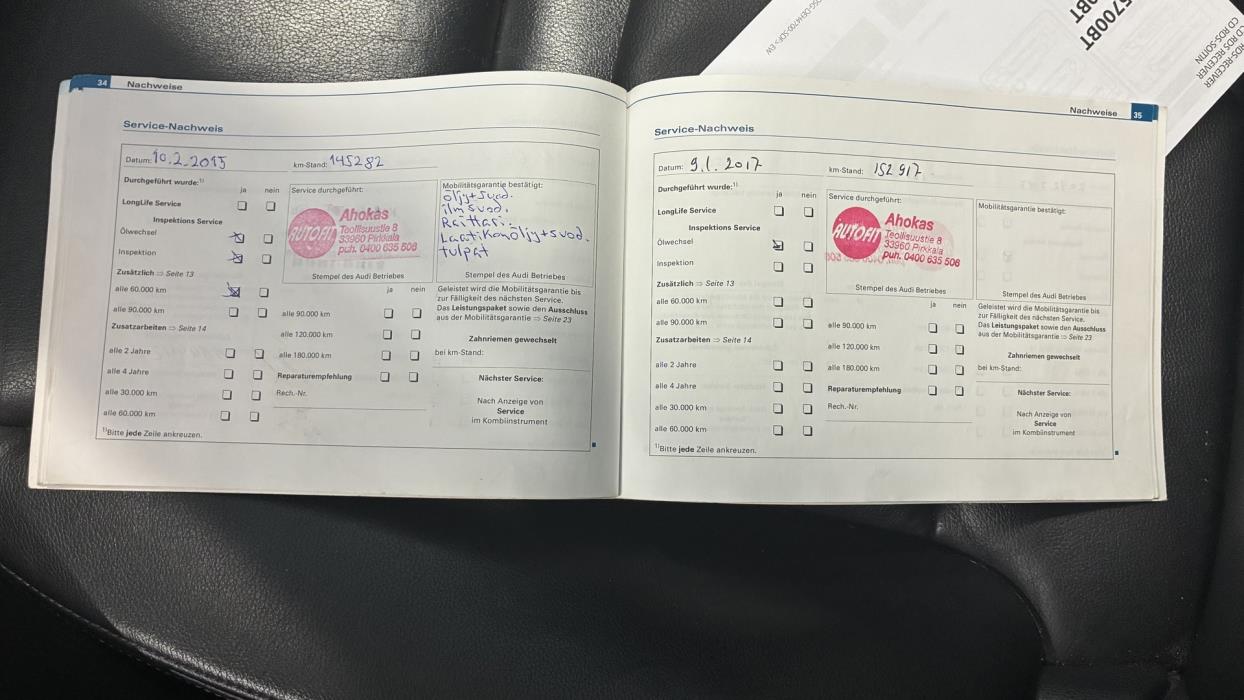 34 Nachweise
Service-Nachweis
Datum: 10.2.2015 km-Stand: 145282
Durchgeführt wurde:¹⁾
ja nein
LongLife Service
Inspektions Service
Ölwechsel
Inspektion
Zusätzlich ⇒ Seite 13
alle 60.000 km
alle 90.000 km
Zusatzarbeiten ⇒ Seite 14
alle 2 Jahre
alle 4 Jahre
alle 30.000 km
alle 60.000 km
¹⁾Bitte jede Zeile ankreuzen.
Service durchgeführt:
AUTOFIT
Ahokas
Teollisuustie 8
33960 Pirkkala
puh. 0400 635 508
Stempel des Audi Betriebes
ja nein
alle 90.000 km
alle 120.000 km
alle 180.000 km
Reparaturempfehlung
Rech.-Nr.
Mobilitätsgarantie bestätigt:
öljy+suod.
ilm suod.
Raitisi.
Laatikonöljy+suod.
tulpat
Stempel des Audi Betriebes
Geleistet wird die Mobilitätsgarantie bis
zur Fälligkeit des nächsten Service.
Das Leistungspaket sowie den Ausschluss
aus der Mobilitätsgarantie ⇒ Seite 23
Zahnriemen gewechselt
bei km-Stand:
Nächster Service:
Nach Anzeige von
Service
im Kombiinstrument
Nachweise 35
Service-Nachweis
Datum: 9.1.2017 km-Stand: 152 917
Durchgeführt wurde:¹⁾
ja nein
LongLife Service
Inspektions Service
Ölwechsel
Inspektion
Zusätzlich ⇒ Seite 13
alle 60.000 km
alle 90.000 km
Zusatzarbeiten ⇒ Seite 14
alle 2 Jahre
alle 4 Jahre
alle 30.000 km
alle 60.000 km
¹⁾Bitte jede Zeile ankreuzen.
Service durchgeführt:
AUTOFIT
Ahokas
Teollisuustie 8
33960 Pirkkala
puh. 0400 635 508
Stempel des Audi Betriebes
ja nein
alle 90.000 km
alle 120.000 km
alle 180.000 km
Reparaturempfehlung
Rech.-Nr.
Mobilitätsgarantie bestätigt:
Stempel des Audi Betriebes
Geleistet wird die Mobilitätsgarantie bis
zur Fälligkeit des nächsten Service.
Das Leistungspaket sowie den Ausschluss
aus der Mobilitätsgarantie ⇒ Seite 23
Zahnriemen gewechselt
bei km-Stand:
Nächster Service:
Nach Anzeige von
Service
im Kombiinstrument
5700BT
0BT
CD RDS-RECEIVER
CD RDS-SOITIN